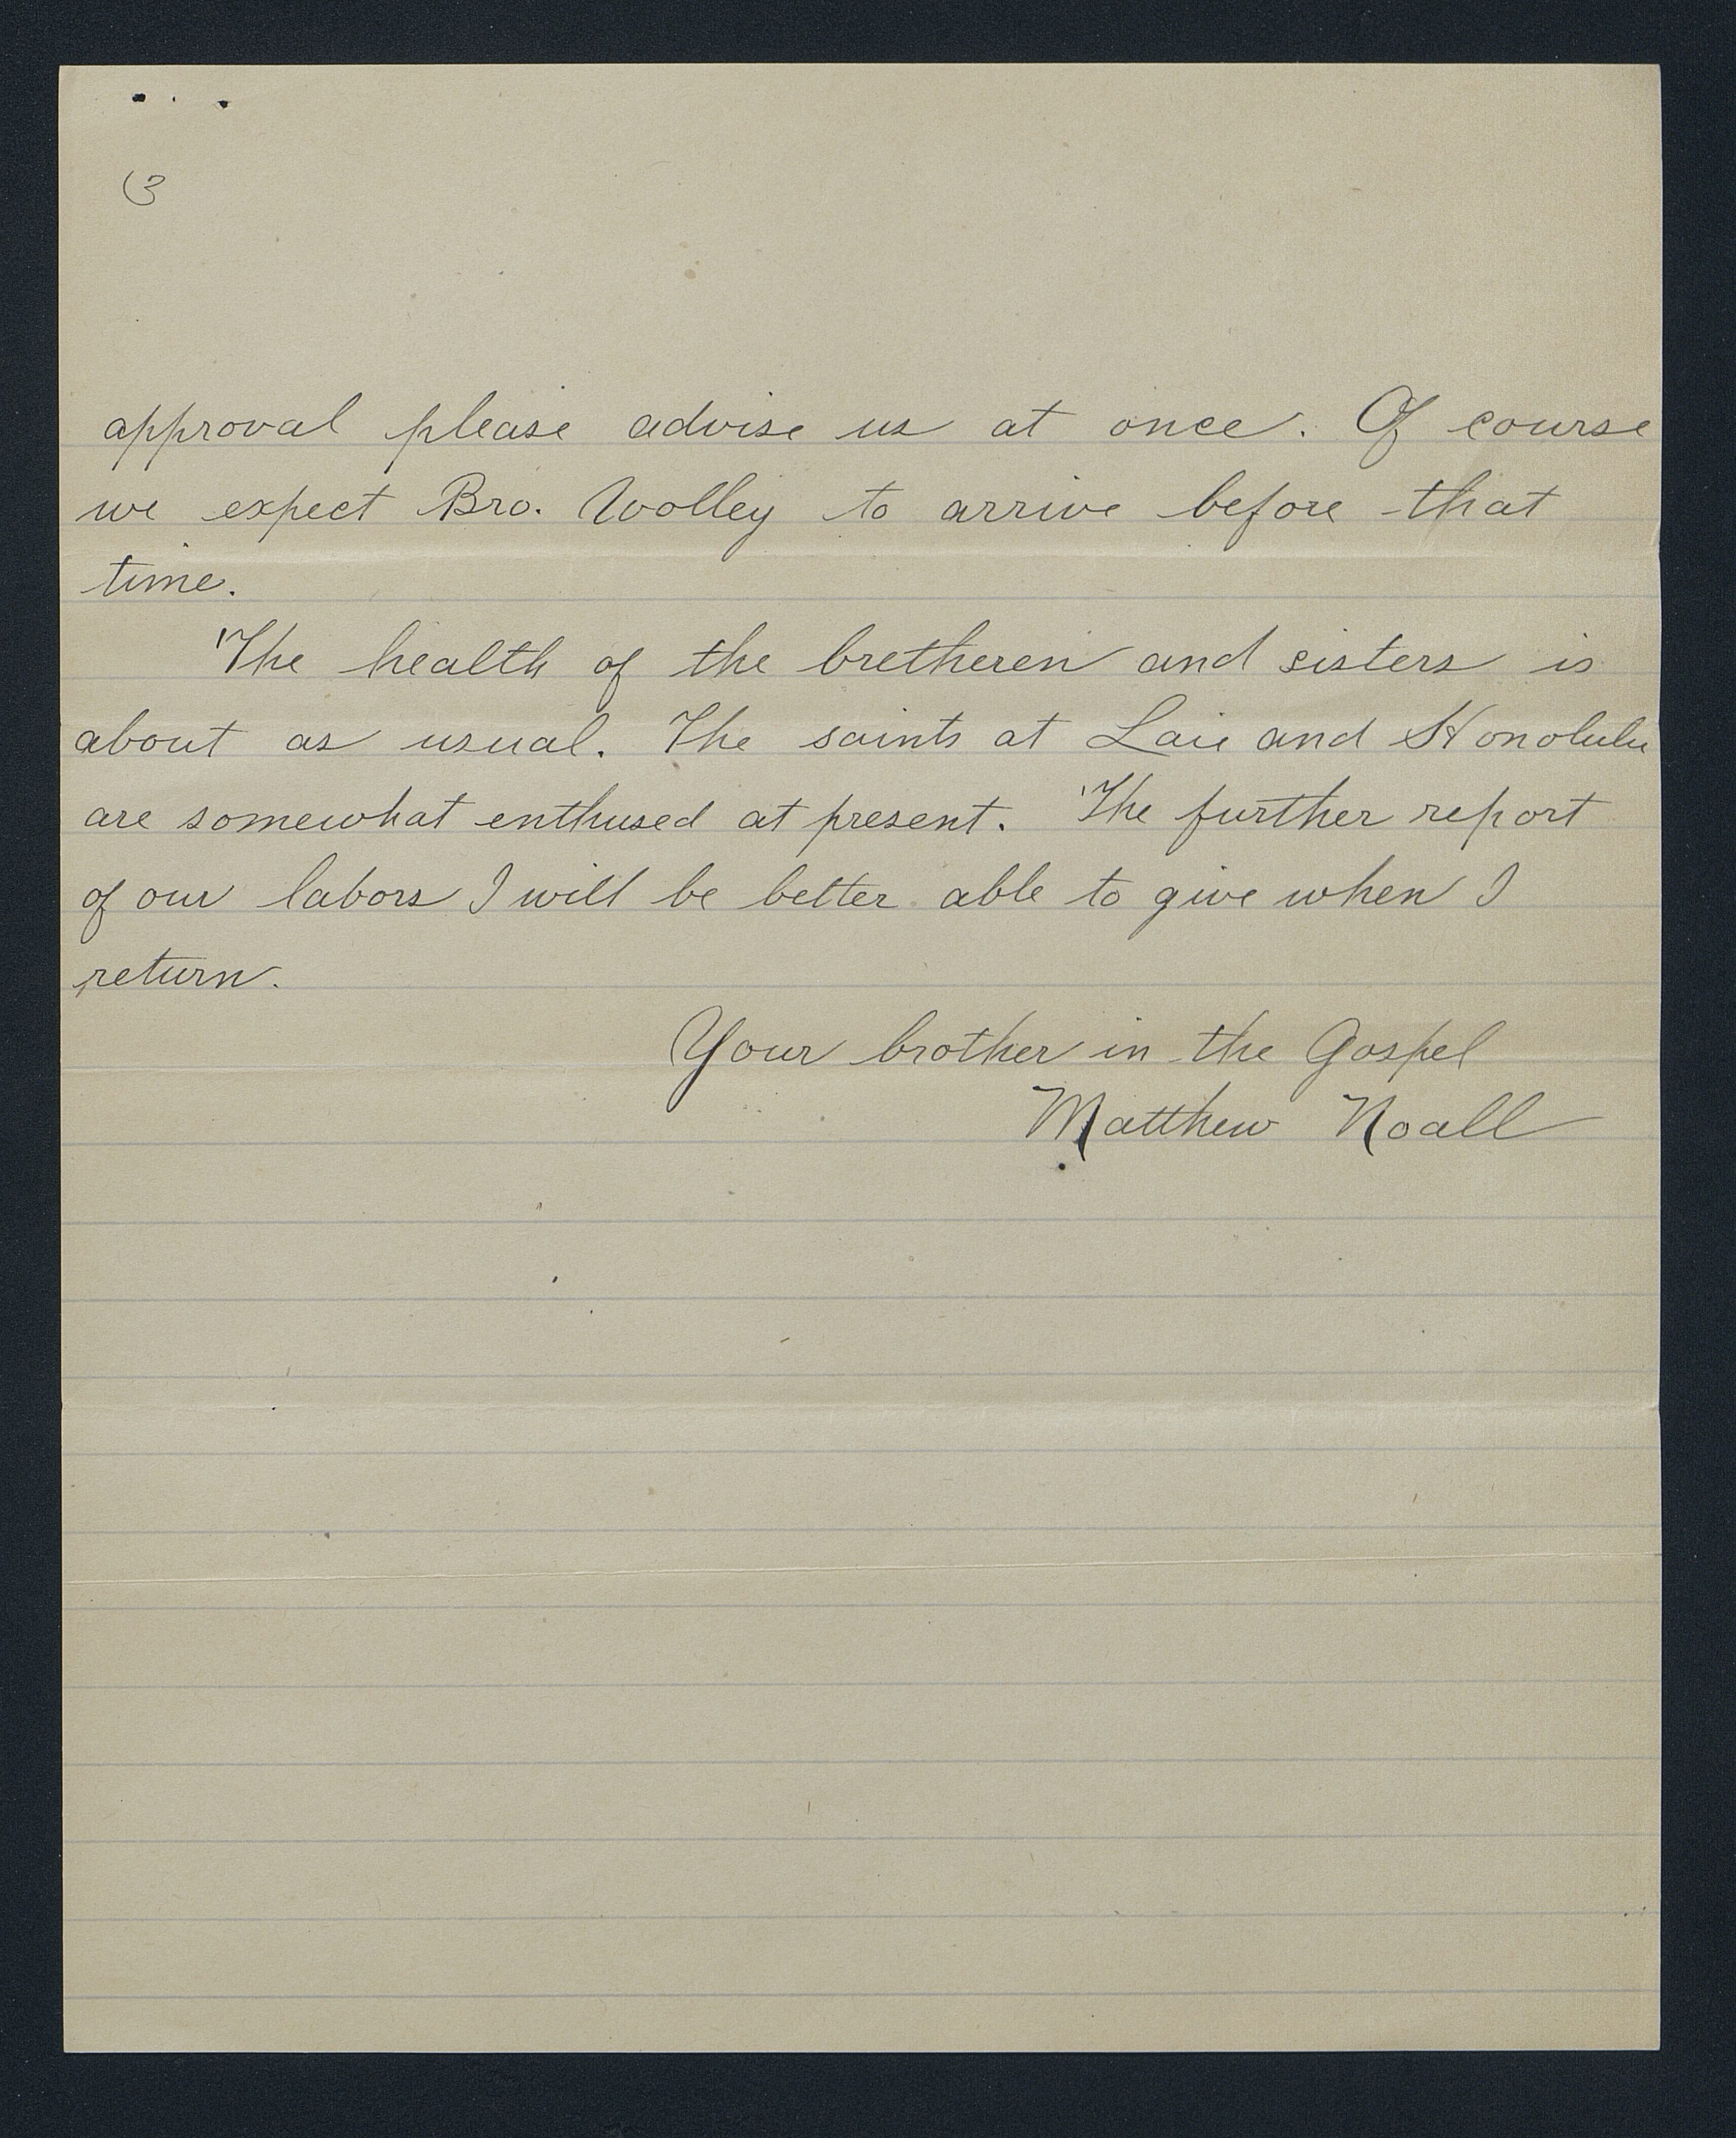 (3
approval please advise us at once. Of course
we expect Bro. Wolley to arrive before that
time.
The health of the bretheren and sisters is
about as usual. The saints at Laie and Honolulu
are somewhat enthused at present. The further report
of our labors I will be better able to give when I
return.
Your brother in the Gospel
Matthew Noall